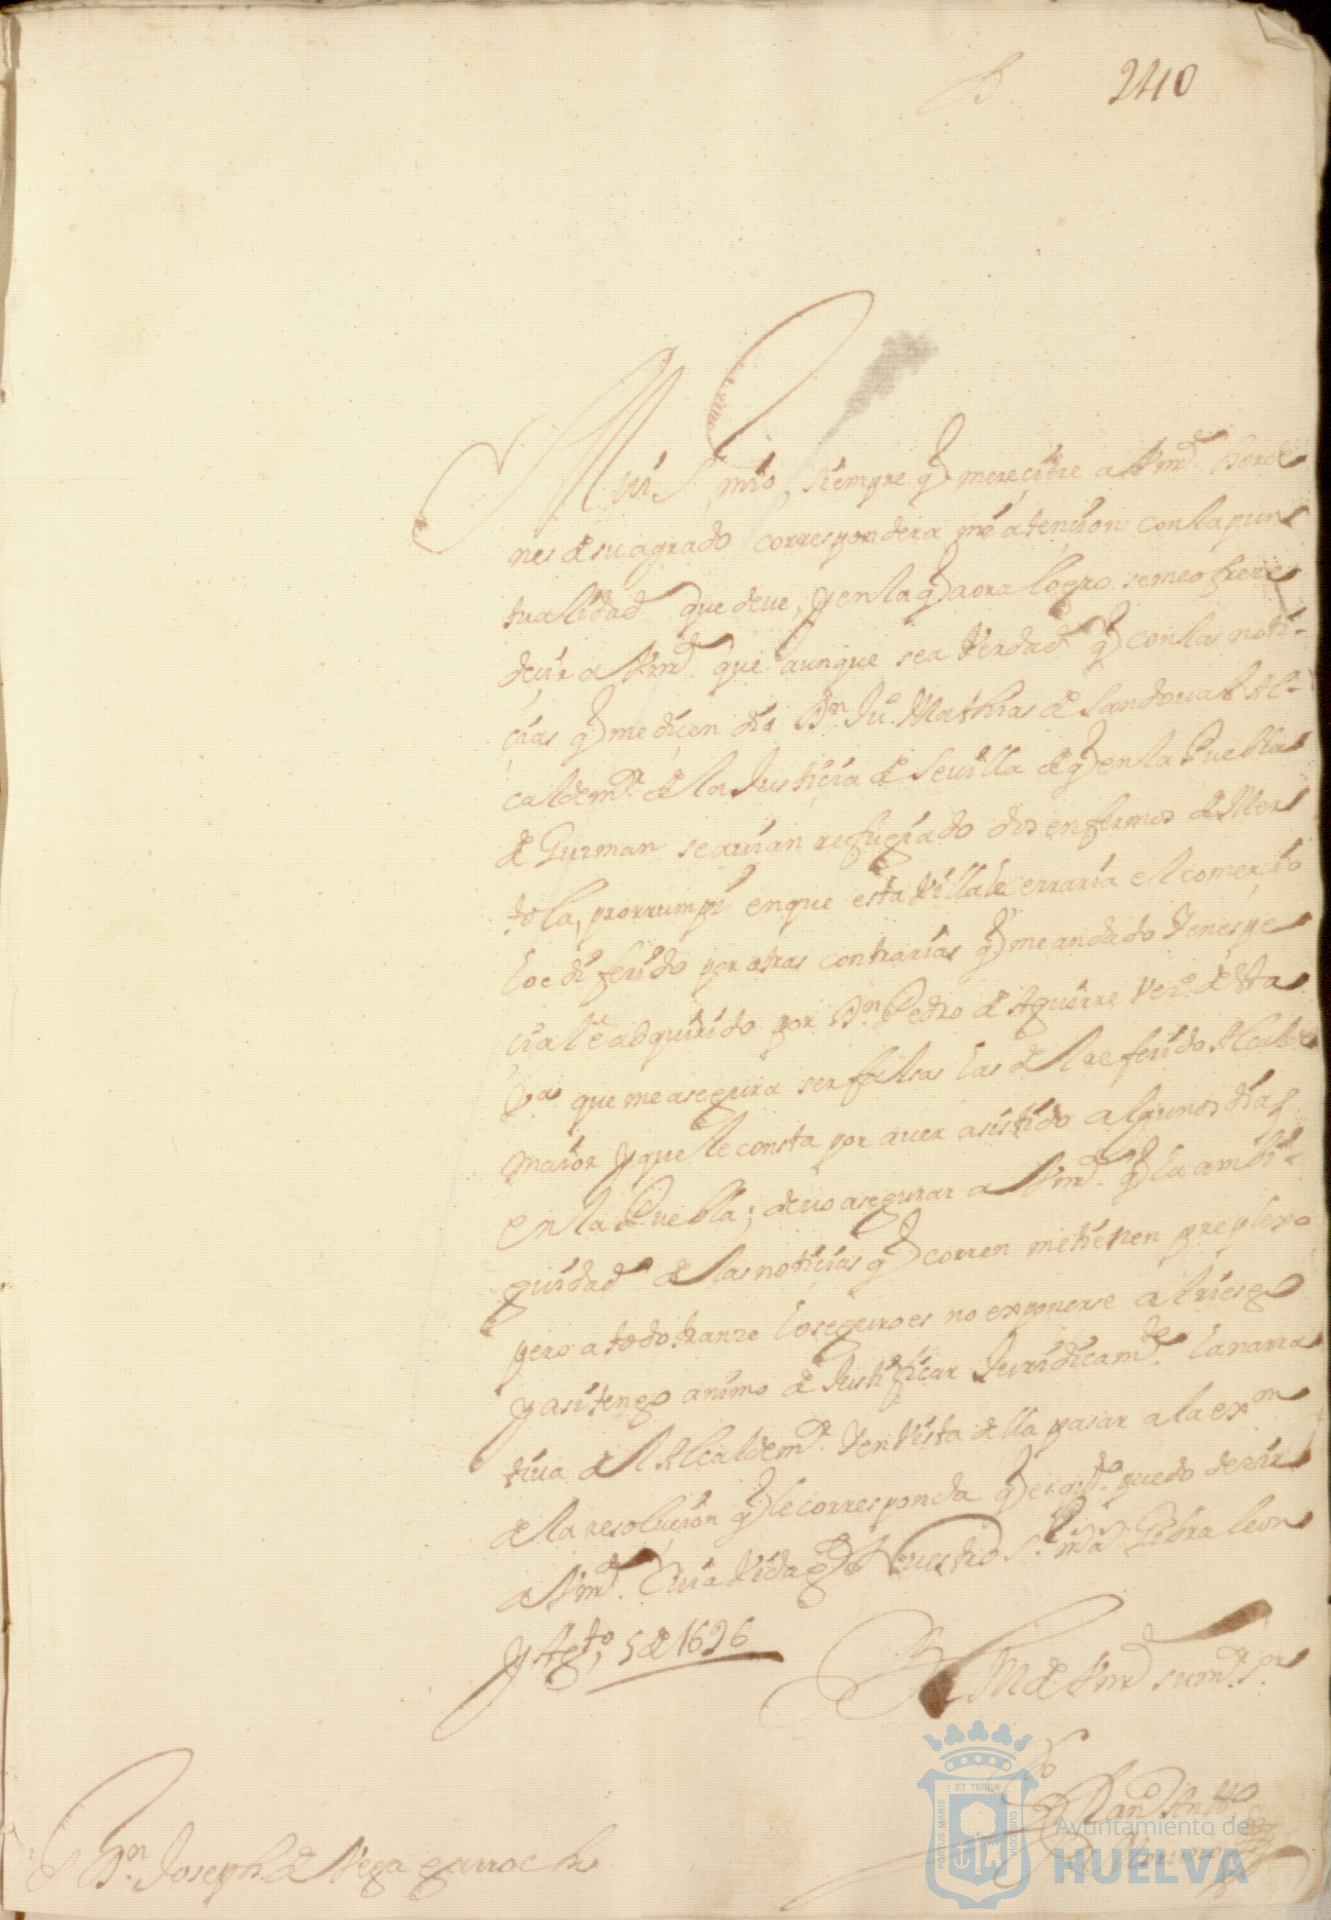 240
Mui Sr. mio, siempre q mereciere a Vmd. horde-
nes de su agrado correspondera mi atencion con la pun
tualidad que deue, y en la q aora logro se me ofreze
decir a Vmd. que aunque sea Verdad q con las noti-
cias q me dicen dio Dn. Juo. Mathias de Sandoual Al-
calde mr. de la Justicia de Seuilla de q en la Puebla
de Guzman se auian refugiado dos enfermos de Mer
tola, prorrumpi en que esta Villa le cerraria el comercio
lo e diferido por otras contrarias q me an dado Y en espe
cial e adquirido por Dn. Pedro de Aguirre Vezo. de esta
Va que me asegura ser falsas las del referido Alcalde
maior y que le consta por auer asistido algunos dias
en la Puebla; deuo asegurar a Vmd. q la ambi-
guidad de las noticias q corren me tienen preplexo
pero a todo tranze lo seguro es no exponerse al riesgo
y asi tengo animo de Justificar Juridicamte. la narra
tiua del Alcalde mr. Y en Vista della pasar a la exon
de la resolucion q le corresponda q es qto. puedo dezir
a Vmd. Cuia Vida gde Nuestro Sr. ms as. Gibraleon
y Agto 5 de 1696
BLM de Vmd su mr. sr
Dn. Joseph de Vega garrocho
PORTUS MARIS
ET TERRÆ
CUSTODIA
Ayuntamiento de
HUELVA